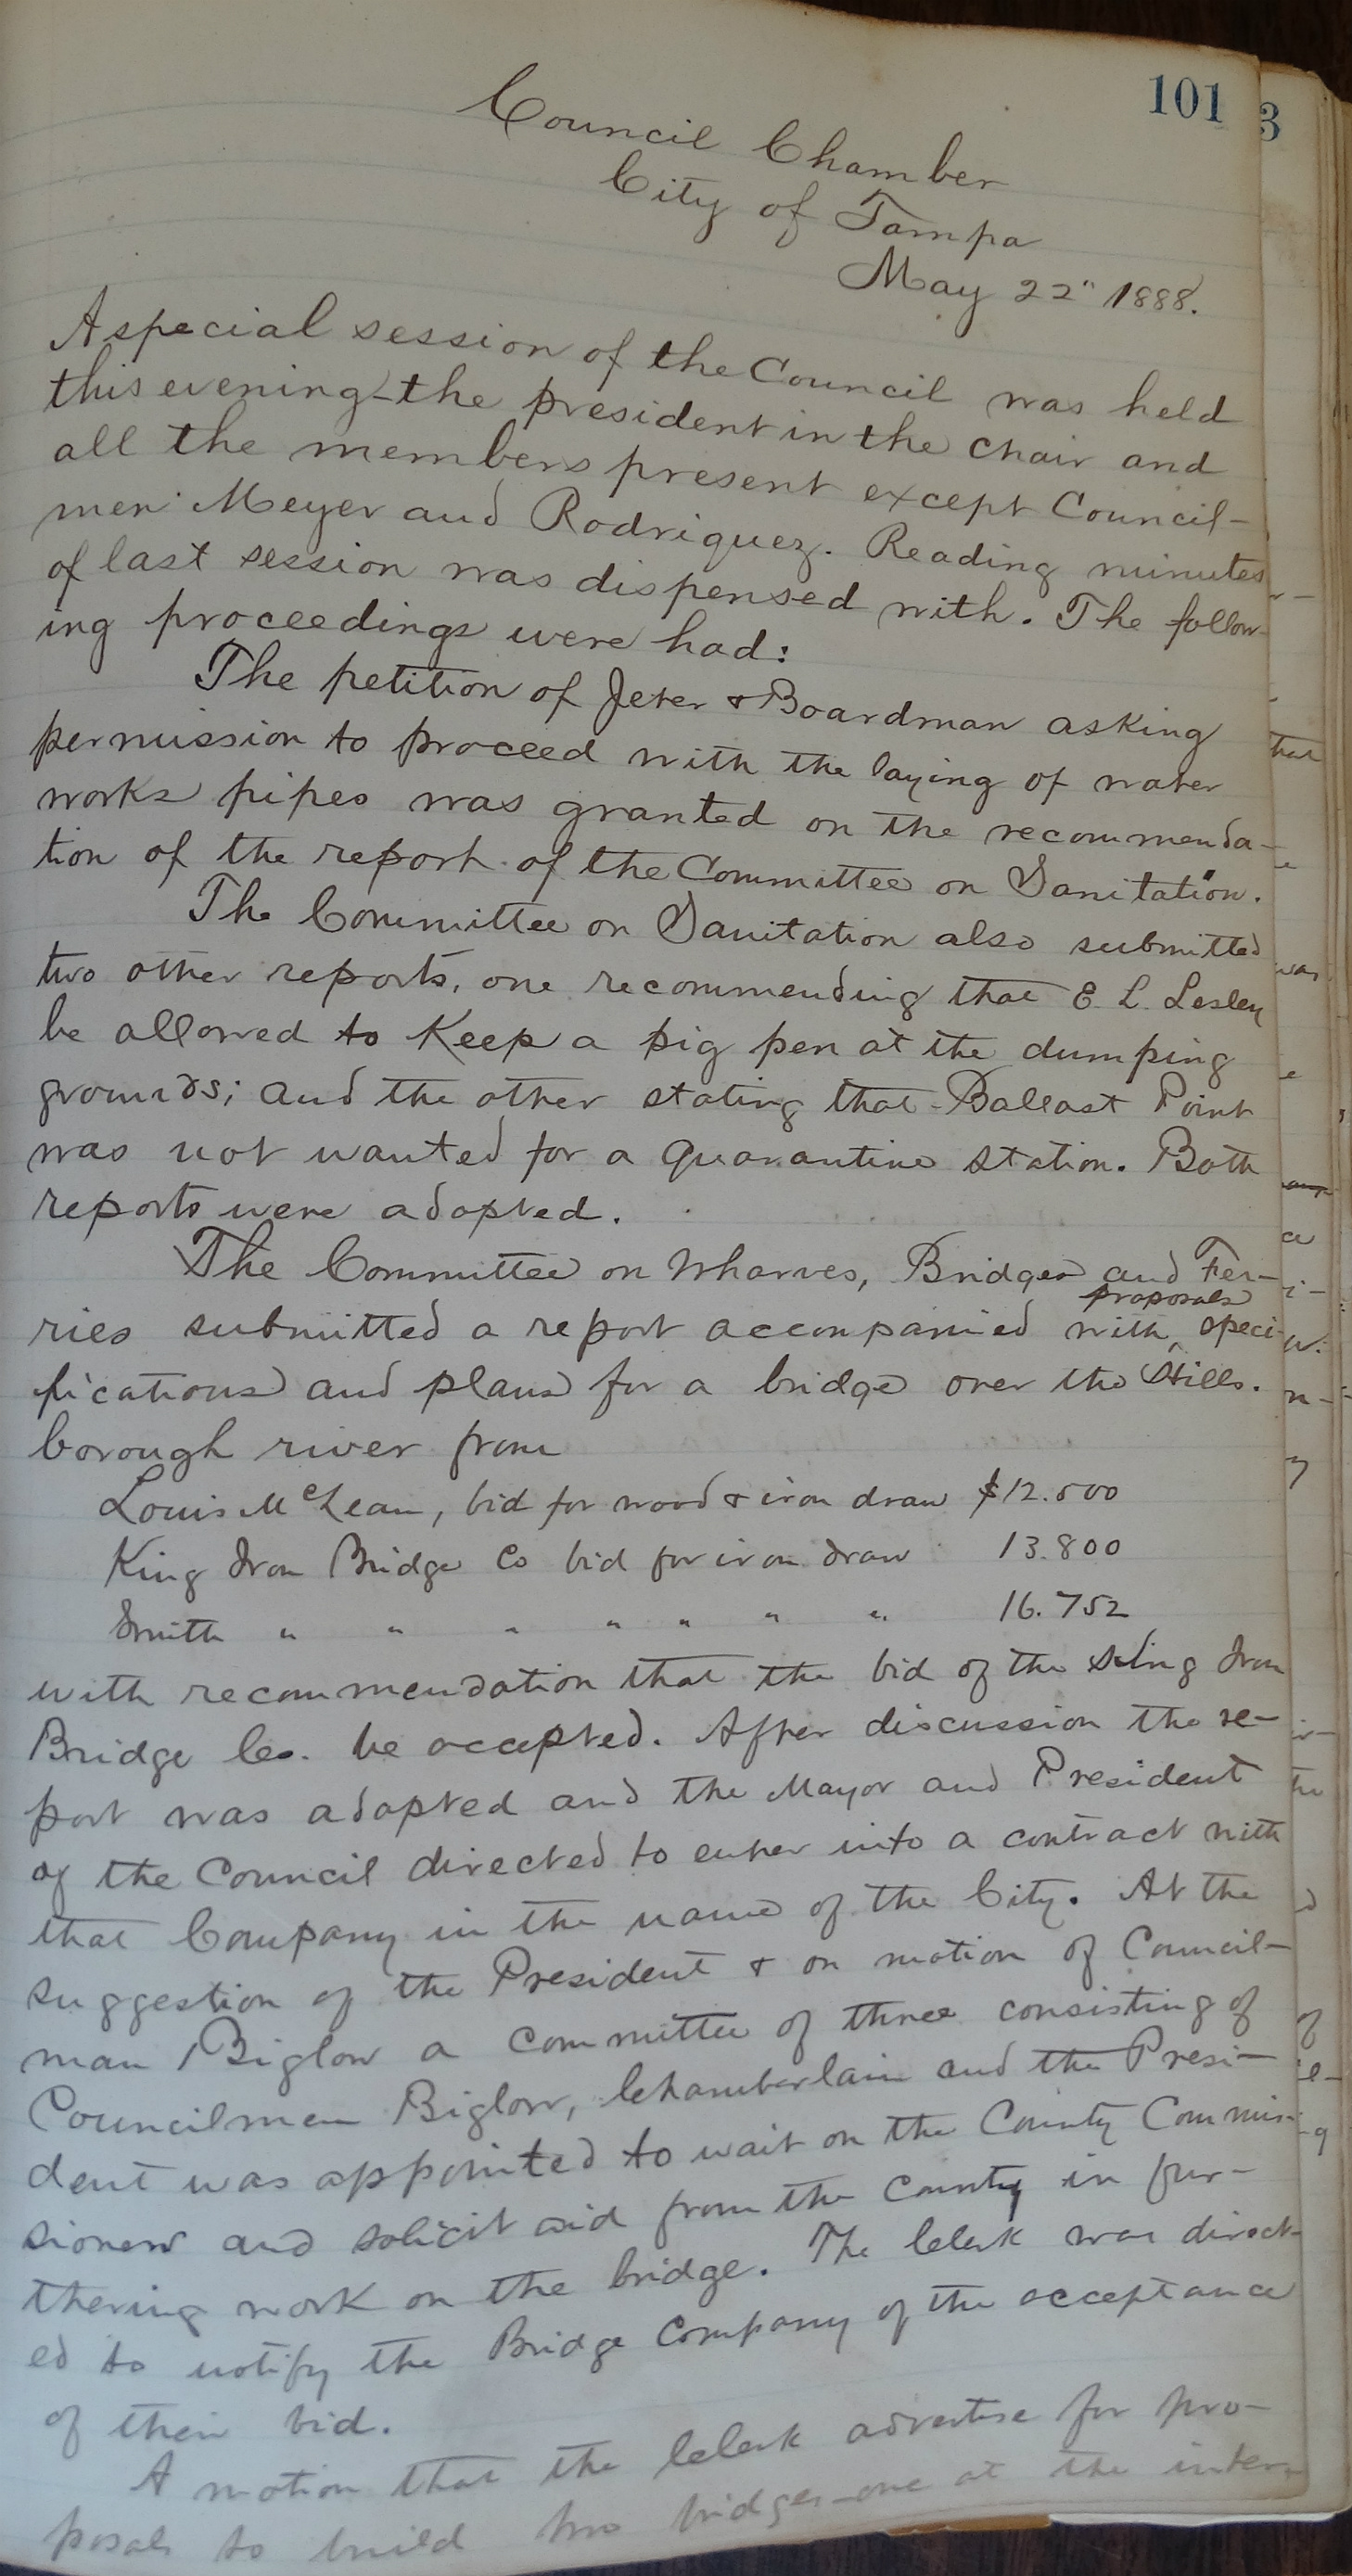 101
3
Council Chamber
City of Tampa
May 22" 1888.
A special session of the Council was held
this evening - the president in the chair and
all the members present except Council-
men Meyer and Rodriguez. Reading minutes
of last session was dispensed with. The follow-
ing proceedings were had:
The petition of Jeter & Boardman asking
permission to proceed with the laying of water
works pipes was granted on the recommenda-
tion of the report of the Committee on Sanitation.
The Committee on Sanitation also submitted
two other reports, one recommending that E. L. Lesley
be allowed to keep a pig pen at the dumping
grounds; and the other stating that Ballast Point
was not wanted for a quarantine station. Both
reports were adopted.
The Committee on Wharves, Bridges and Fer-
proposals
ries submitted a report accompanied with ^ speci-
fications and plans for a bridge over the Hills-
borough river from
Louis McLean, bid for wood & iron draw $12.500
King Iron Bridge Co bid for iron draw 13.800
Smith " " " " " " " 16.752
with recommendation that the bid of the King Iron
Bridge Co. be accepted. After discussion the re-
port was adopted and the Mayor and President
of the Council directed to enter into a contract with
that Company in the name of the City. At the
suggestion of the President & on motion of Council-
man Biglow a committee of three consisting of
Councilmen Biglow, Chamberlain and the Presi-
dent was appointed to wait on the County Commis-
sioners and solicit aid from the County in fur-
thering work on the bridge. The Clerk was direct-
ed to notify the Bridge Company of the acceptance
of their bid.
A motion that the Clerk advertise for pro-
posals to build two bridges - one at the inter-